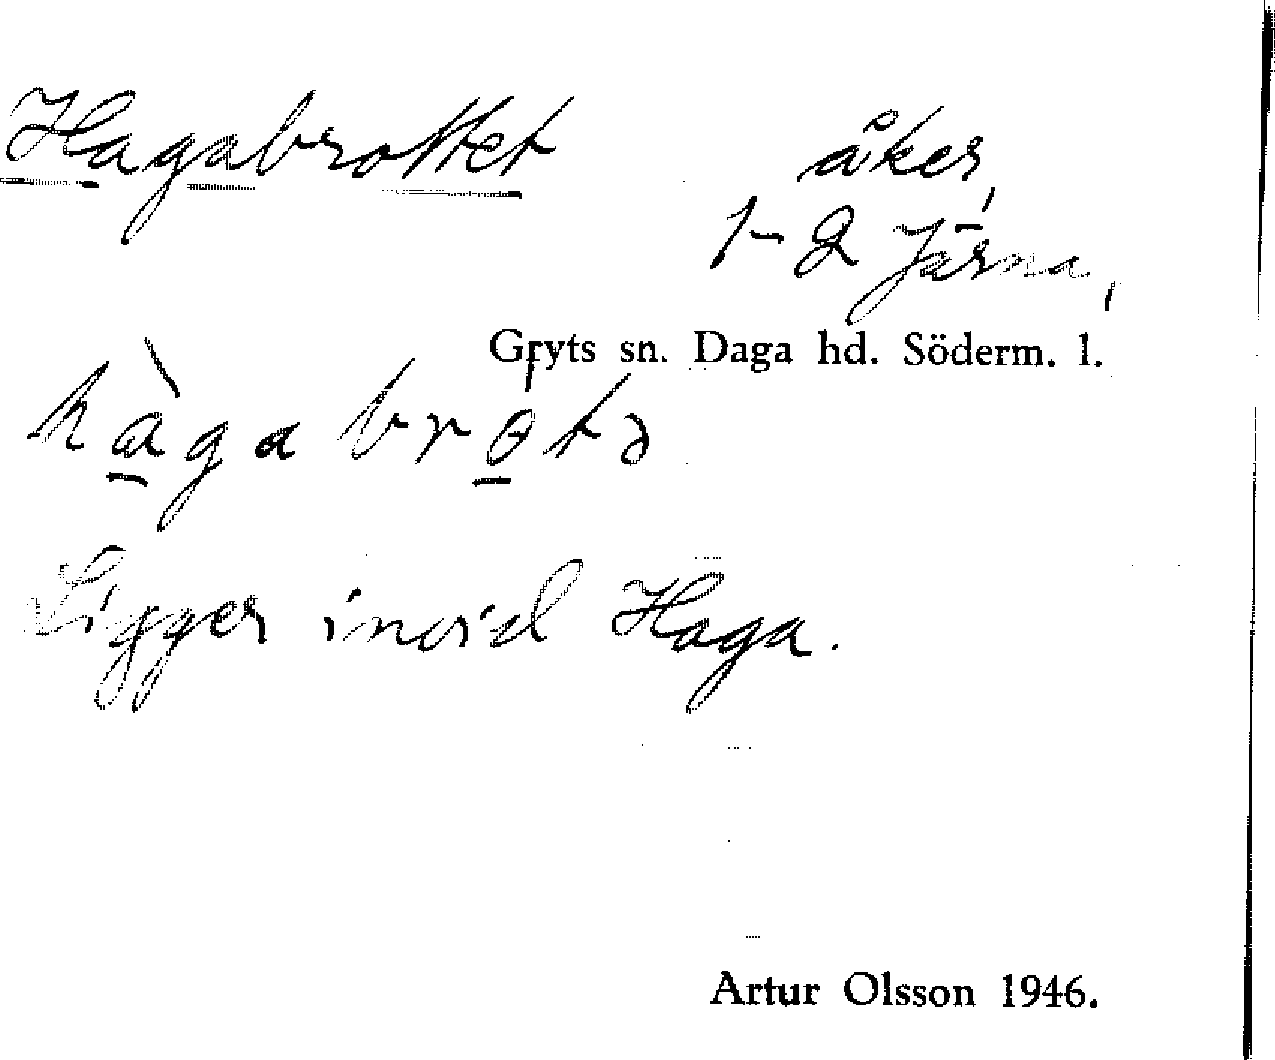 Hagabrottet
åker,
1-2 Järna,
Gryts sn. Daga hd. Söderm. l.
hàgabrotə
Ligger invid Haga.
Artur Olsson 1946.